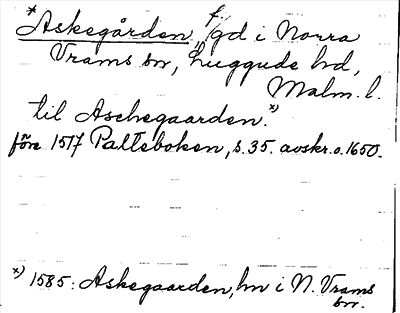 *Askegården, f. gd i Norra
Vrams sn, Luggude hd,
Malm. l.
til Aschegaarden.*)
före 1517 Palteboken, s. 35. avskr. o. 1650.
*) 1585: Askegaarden, hn i N. Vrams
sn.